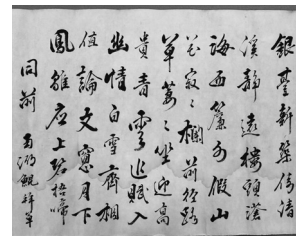 銀臺新築倚清
溪靜遠樓頭滄
海西簾外假山
花寂〻欄前徑路
草萋〻坐迎高
貴青雲近賦入
幽情白雪齊相
值論文窓月下
鳳雛應上碧梧啼
同前 鯤拜草